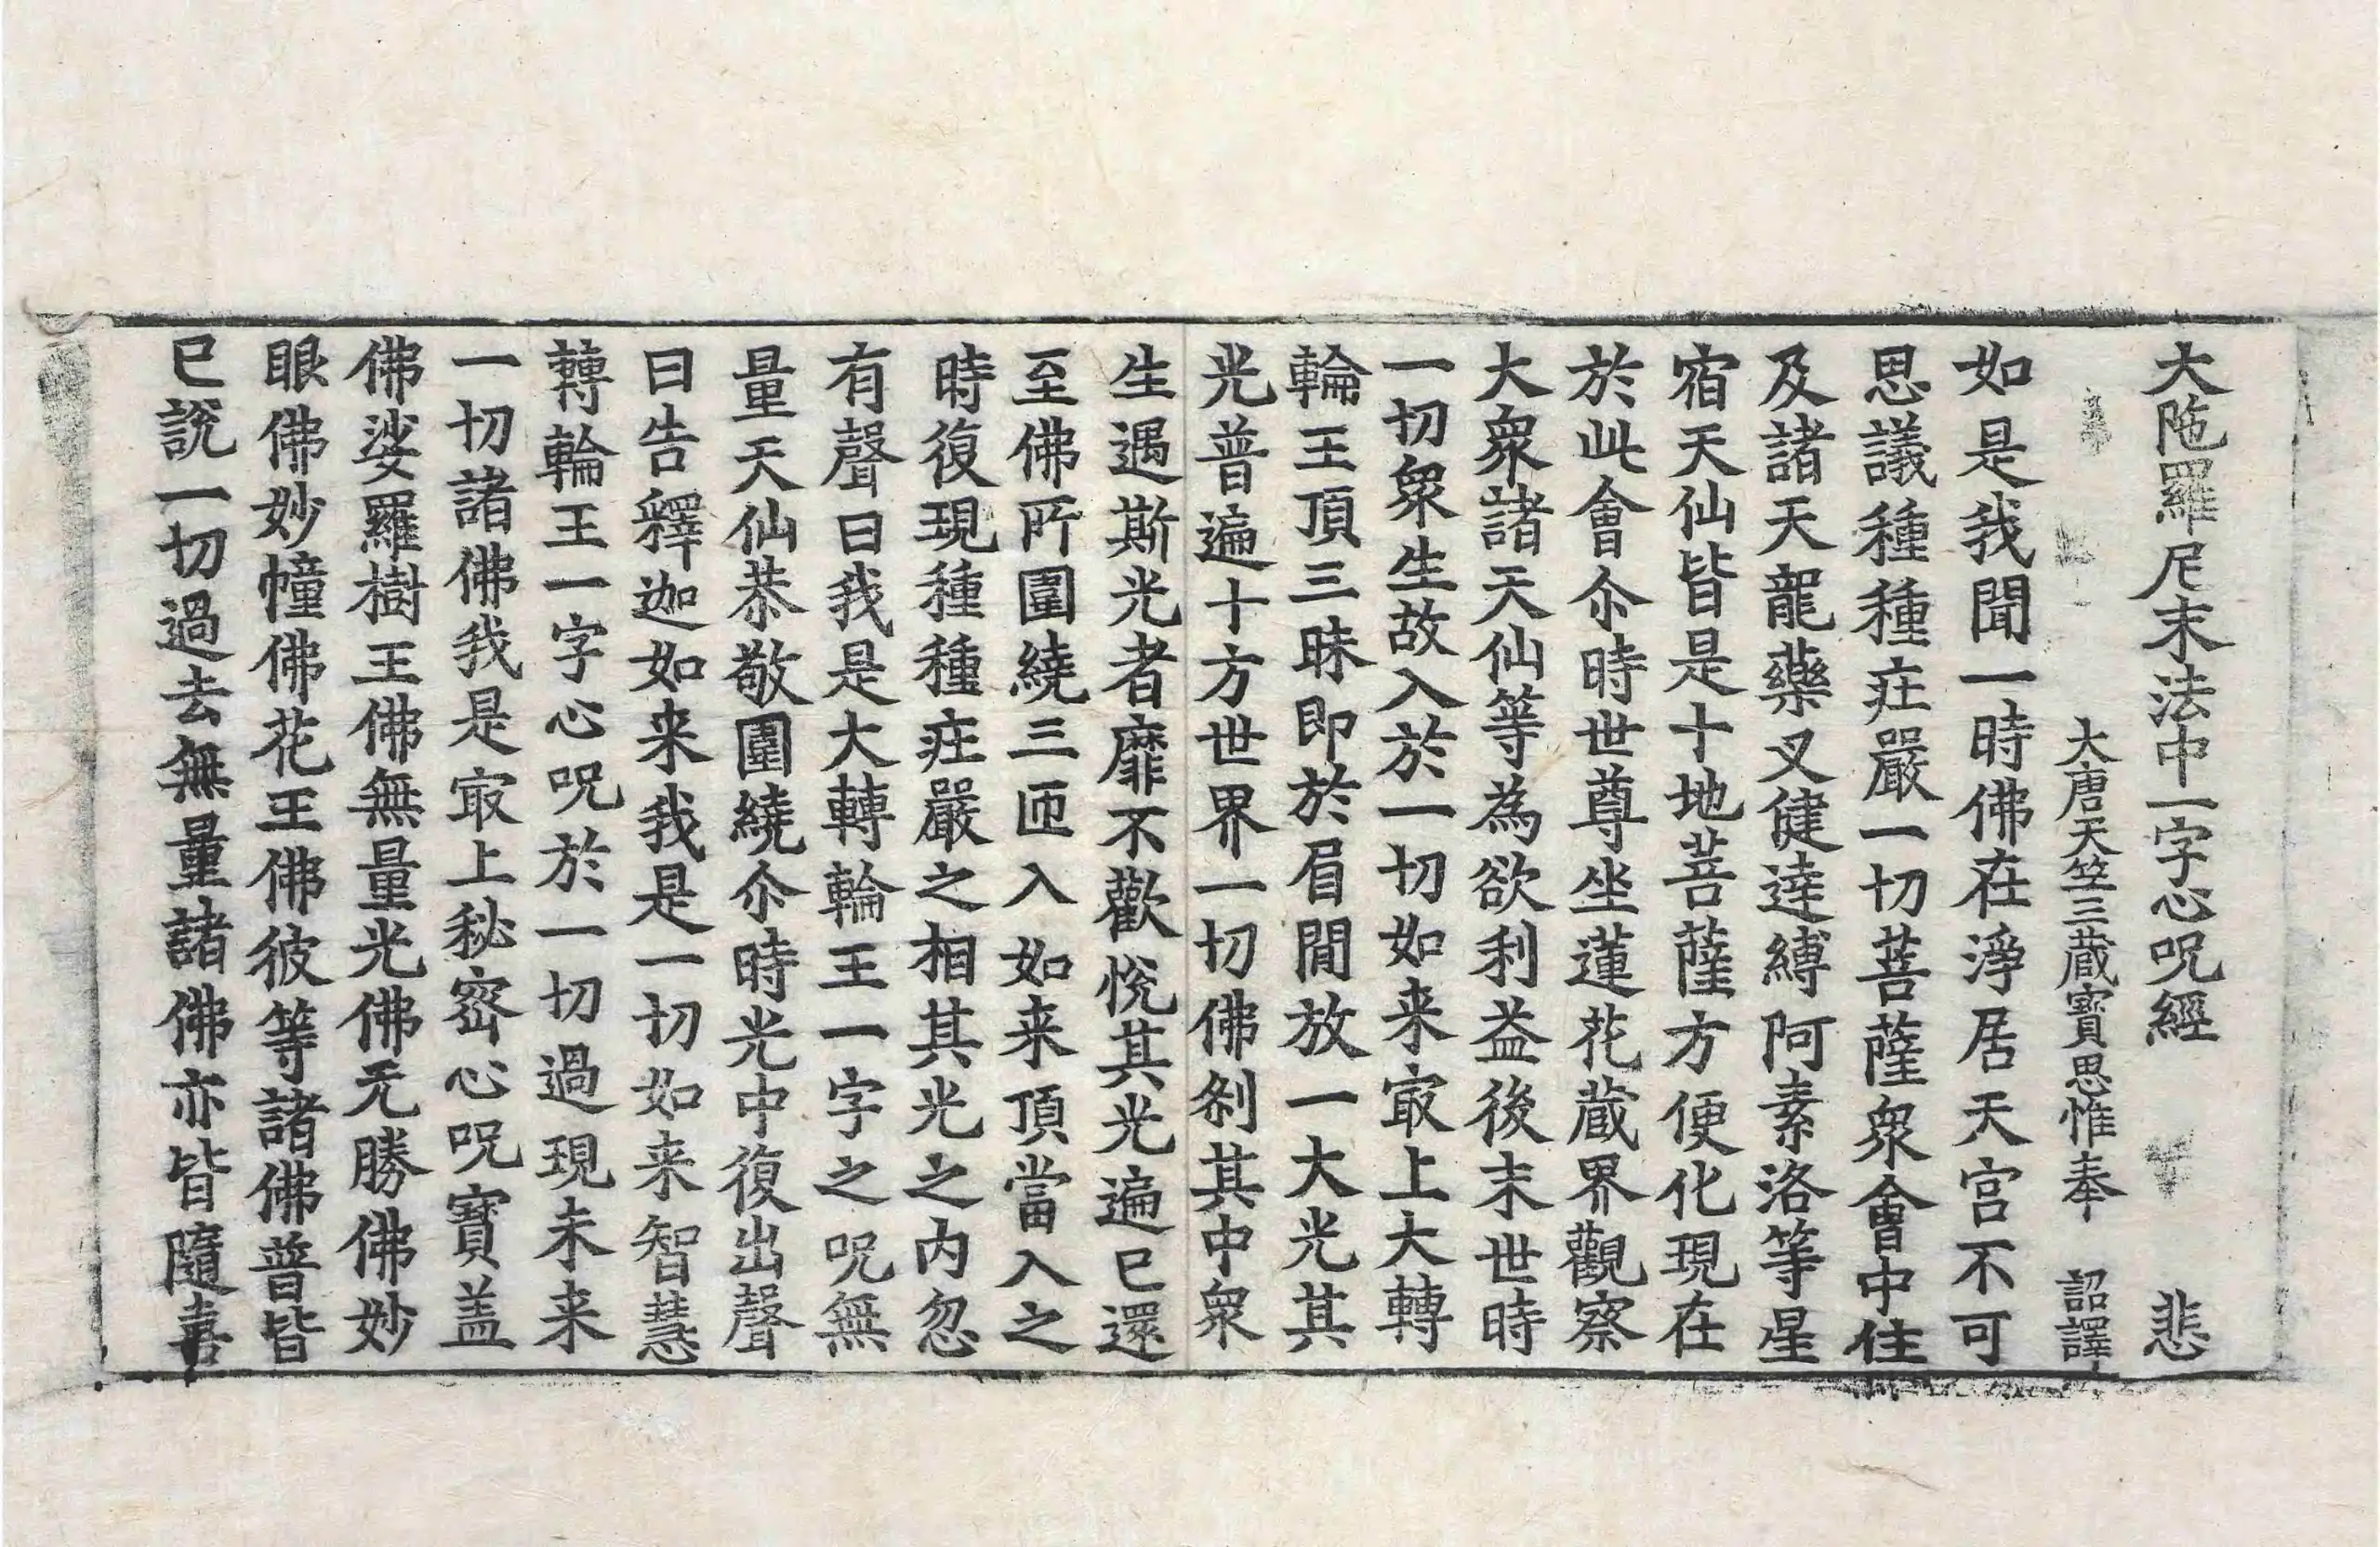 大陁羅尼末法中一字心呪經 悲
大唐天笁三蔵寶思惟奉 詔譯
如是我聞一時佛在淨居天宮不可
思議種種庄嚴一切菩薩衆會中住
及諸天龍藥叉健達縛阿素洛等星
宿天仙皆是十地菩薩方便化現在
於此會尒時世尊坐蓮花蔵界觀察
大衆諸天仙等為欲利益後末世時
一切衆生故入於一切如来㝡上大轉
輪王頂三昧即於眉間放一大光其
光普遍十方世界一切佛刹其中衆
生遇斯光者靡不歡悅其光遍已還
至佛所圍繞三匝入如来頂當入之
時復現種種庄嚴之相其光之内忽
有聲曰我是大轉輪王一字之呪無
量天仙恭敬圍繞尒時光中復出聲
曰告釋迦如来我是一切如来智慧
轉輪王一字心呪於一切過現未来
一切諸佛我是㝡上秘密心呪寶盖
佛娑羅樹王佛無量光佛无勝佛妙
眼佛妙幢佛花王佛彼等諸佛普皆
已說一切過去無量諸佛亦皆隨喜